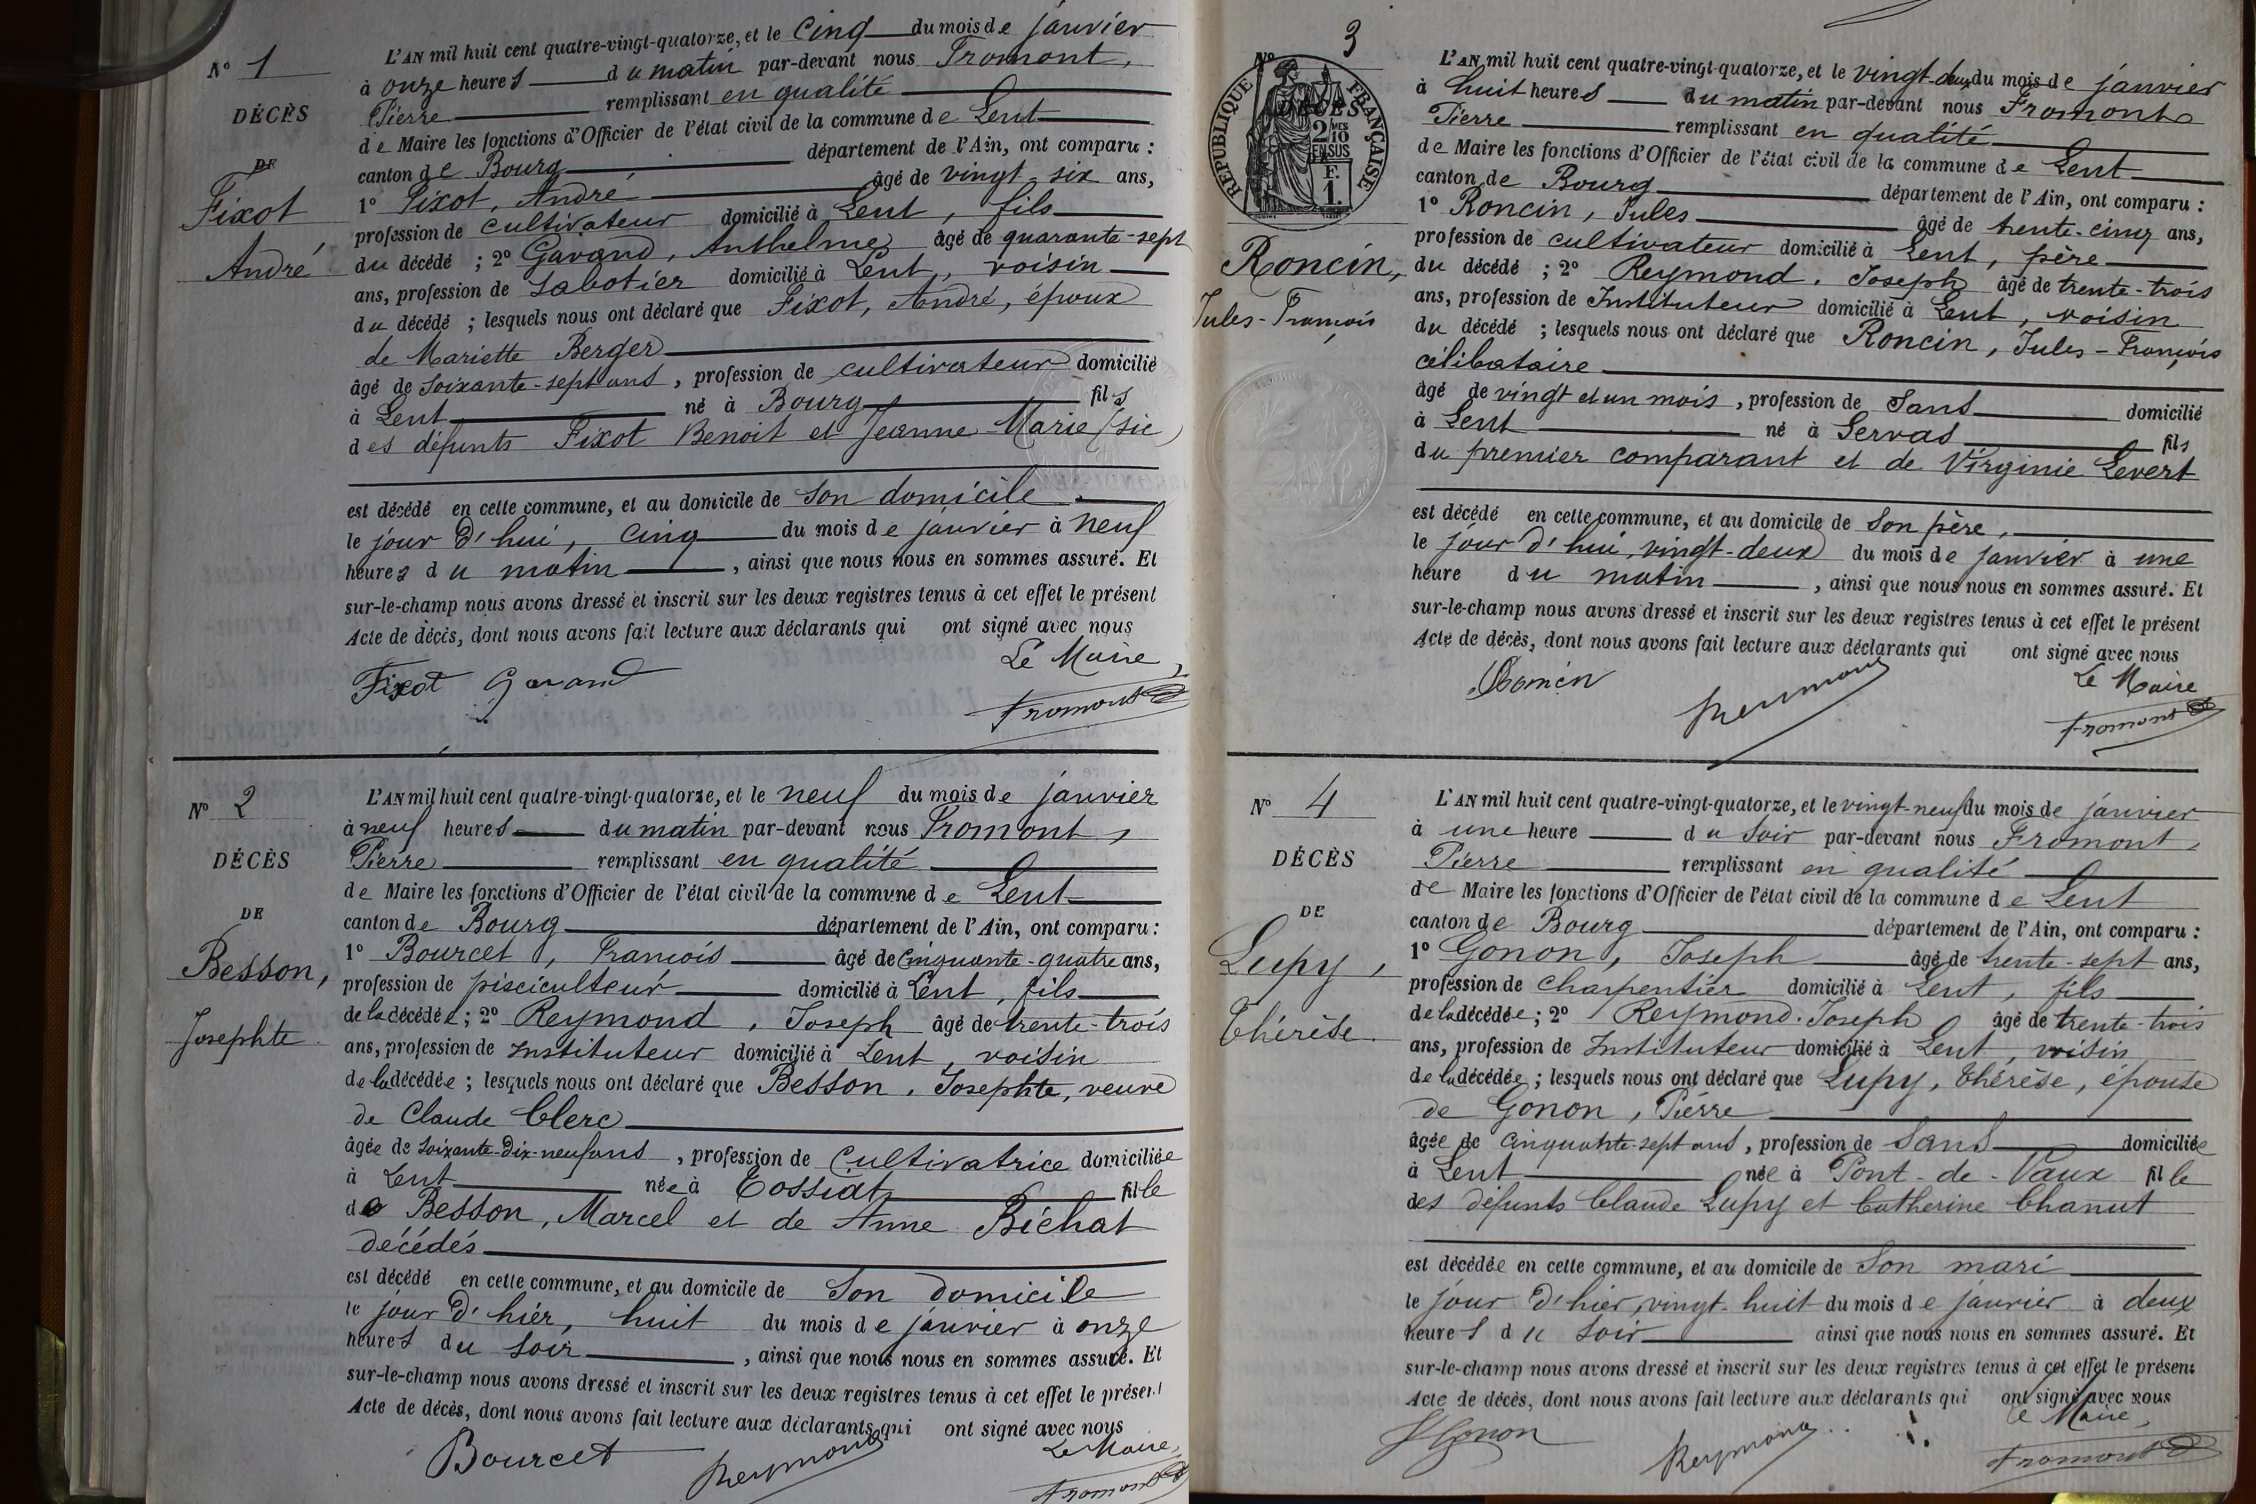 N° 1
DÉCÈS
DE
Fixot
André
L'AN mil huit cent quatre-vingt-quatorze, et le cinq du mois de janvier
à onze heures du matin par-devant nous Fromont,
Pierre remplissant en qualité
de Maire les fonctions d'Officier de l'état civil de la commune de Lent
canton de Bourg département de l'Ain, ont comparu :
1° Fixot, André âgé de vingt-six ans,
profession de cultivateur domicilié à Lent, fils
du décédé ; 2° Gavand, Anthelme âgé de quarante-sept
ans, profession de sabotier domicilié à Lent, voisin
du décédé ; lesquels nous ont déclaré que Fixot, André, époux
de Mariette Berger
âgé de soixante-sept ans, profession de cultivateur domicilié
à Lent né à Bourg fils
des défunts Fixot Benoit et Jeanne Marie (sic)
est décédé en cette commune, et au domicile de son domicile
le jour d'hui, cinq du mois de janvier à neuf
heures du matin, ainsi que nous nous en sommes assuré. Et
sur-le-champ nous avons dressé et inscrit sur les deux registres tenus à cet effet le présent
Acte de décès, dont nous avons fait lecture aux déclarants qui ont signé avec nous
Le Maire,
Fixot Gavand
Fromont
N° 2
DÉCÈS
DE
Besson,
Josephte
L'AN mil huit cent quatre-vingt-quatorze, et le neuf du mois de janvier
à neuf heures du matin par-devant nous Fromont,
Pierre remplissant en qualité
de Maire les fonctions d'Officier de l'état civil de la commune de Lent
canton de Bourg département de l'Ain, ont comparu :
1° Bourcet, François âgé de cinquante-quatre ans,
profession de pisciculteur domicilié à Lent, fils
de la décédée ; 2° Reymond, Joseph âgé de trente-trois
ans, profession de Instituteur domicilié à Lent, voisin
de la décédée ; lesquels nous ont déclaré que Besson, Josephte, veuve
de Claude Clerc
âgée de soixante-dix-neuf ans, profession de cultivatrice domiciliée
à Lent née à Tossiat fille
de Besson, Marcel et de Anne Bichat
décédés
est décédé en cette commune, et au domicile de son domicile
le jour d'hier, huit du mois de janvier à onze
heures du soir, ainsi que nous nous en sommes assuré. Et
sur-le-champ nous avons dressé et inscrit sur les deux registres tenus à cet effet le présent
Acte de décès, dont nous avons fait lecture aux déclarants qui ont signé avec nous
Le Maire,
Bourcet Reymond
Fromont
N° 3
RÉPUBLIQUE FRANÇAISE
DÉCÈS
2/10 MES
EN SUS
F.
1.
Roncin,
Jules-François
L'AN mil huit cent quatre-vingt-quatorze, et le vingt-deux du mois de janvier
à huit heures du matin par-devant nous Fromont
Pierre remplissant en qualité
de Maire les fonctions d'Officier de l'état civil de la commune de Lent
canton de Bourg département de l'Ain, ont comparu :
1° Roncin, Jules âgé de trente-cinq ans,
profession de cultivateur domicilié à Lent, père
du décédé ; 2° Reymond, Joseph âgé de trente-trois
ans, profession de Instituteur domicilié à Lent, voisin
du décédé ; lesquels nous ont déclaré que Roncin, Jules-François
célibataire
âgé de vingt et un mois, profession de Sans domicilié
à Lent né à Servas fils
du premier comparant et de Virginie Levert
est décédé en cette commune, et au domicile de son père,
le jour d'hui, vingt-deux du mois de janvier à une
heure du matin, ainsi que nous nous en sommes assuré. Et
sur-le-champ nous avons dressé et inscrit sur les deux registres tenus à cet effet le présent
Acte de décès, dont nous avons fait lecture aux déclarants qui ont signé avec nous
Le Maire
Roncin Reymond
Fromont
N° 4
DÉCÈS
DE
Lupy,
Thérèse
L'AN mil huit cent quatre-vingt-quatorze, et le vingt-neuf du mois de janvier
à une heure du soir par-devant nous Fromont,
Pierre remplissant en qualité
de Maire les fonctions d'Officier de l'état civil de la commune de Lent
canton de Bourg département de l'Ain, ont comparu :
1° Gonon, Joseph âgé de trente-sept ans,
profession de charpentier domicilié à Lent, fils
de la décédée ; 2° Reymond. Joseph âgé de trente-trois
ans, profession de Instituteur domicilié à Lent, voisin
de la décédée ; lesquels nous ont déclaré que Lupy, Thérèse, épouse
de Gonon, Pierre
âgée de cinquante-sept ans, profession de Sans domiciliée
à Lent née à Pont-de-Vaux fille
des défunts Claude Lupy et Catherine Chanut
est décédée en cette commune, et au domicile de son mari
le jour d'hier, vingt-huit du mois de janvier à deux
heures du soir ainsi que nous nous en sommes assuré. Et
sur-le-champ nous avons dressé et inscrit sur les deux registres tenus à cet effet le présent
Acte de décès, dont nous avons fait lecture aux déclarants qui ont signé avec nous
Le Maire,
Gonon Reymond
Fromont